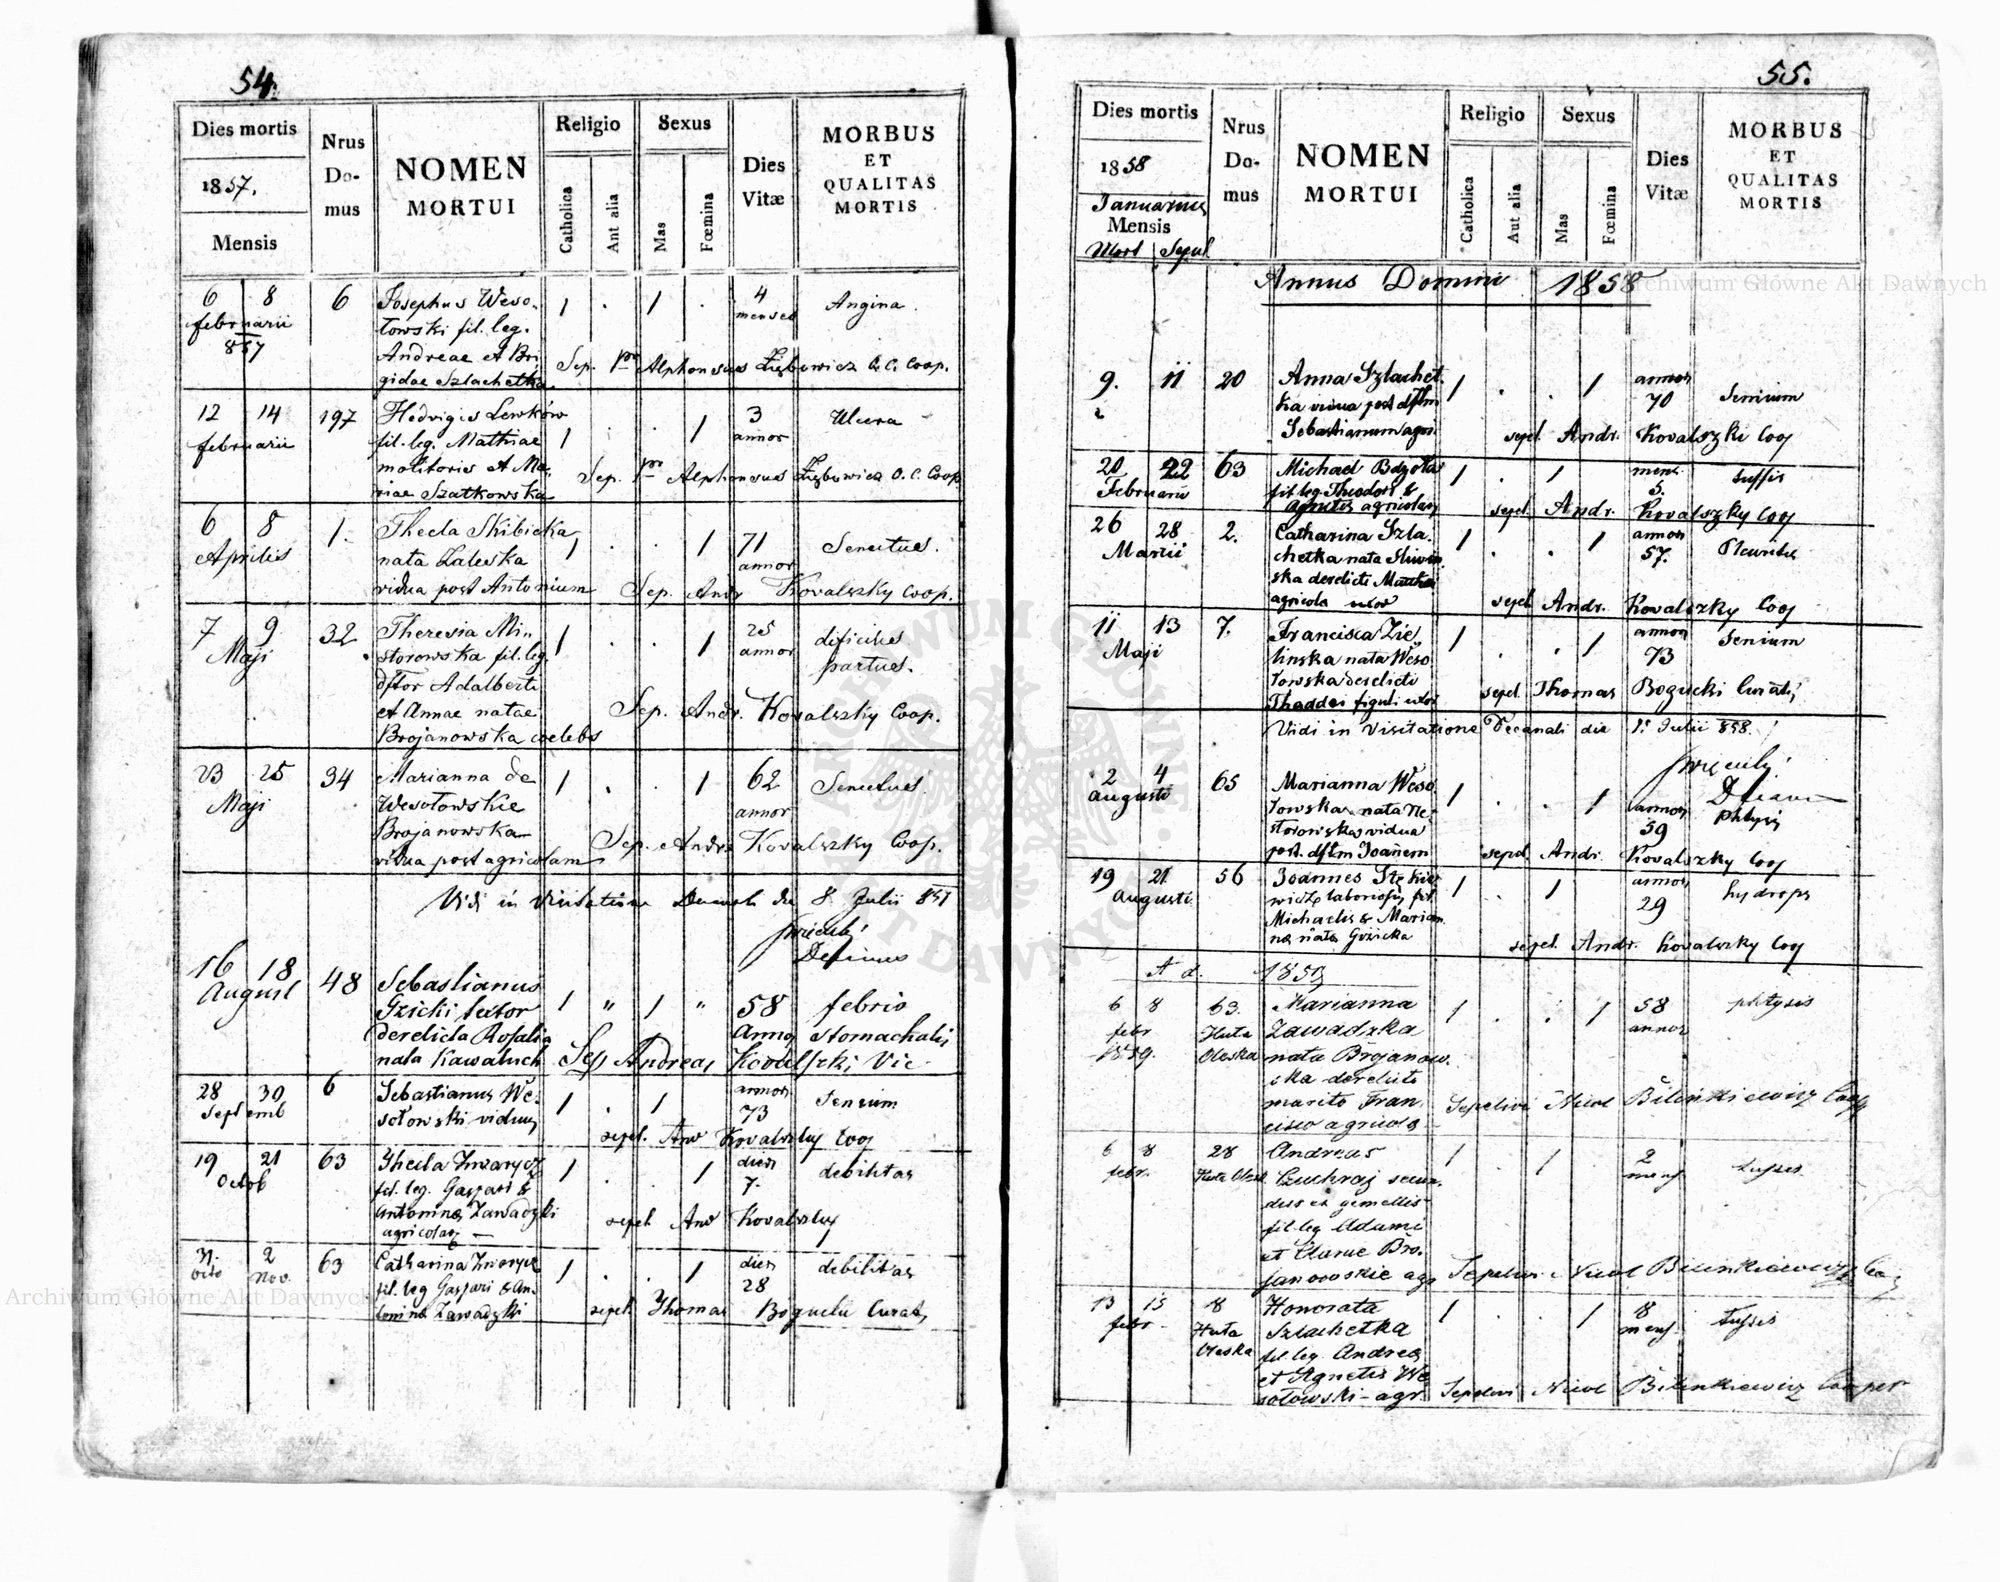 54.
Dies mortis
Nrus Domus
NOMEN MORTUI
Religio
Sexus
Dies Vitæ
MORBUS ET QUALITAS MORTIS
1857.
Mensis
Catholica
Aut alia
Mas
Fœmina
6 8 6 Josephus Weso- 1 . 1 . 4 Angina.
februarii towski fil. leg. menses
857 Andreae et Bri
gidae Szlachetka Sep. pr Alphonsus O. C. Coop.
12 14 197 Hedvigis Lewków 1 . . 1 3 Ulcera
februarii fil. leg. Mathiae annor
molitoris et Ma-
riae Szatkowska Sep. pr Alphonsus O. C. Coop
6 8 1. Thecla Skibicka 1 . . 1 71 Senectus.
Aprilis nata Zaleska annor
vidua post Antonium Sep. Andr Kovalszky Coop.
7 9 32 Theresia Mi- 1 . . 1 25 dificiles
Maji storowska fil. leg. annor partus.
dftor Adalberti
et Annae natae Sep. Andr. Kovalszky Coop.
Brojanowska coelebs
23 25 34 Marianna de 1 . . 1 62 Senectus.
Maji Wesołowskie annor
Brojanowska
vidua post agricolam Sep. Andr. Kovalszky Coop.
Vidi in Visitatione Decanali die 8 Julii 857
16 18 48 Sebastianus 1 " 1 " 58 febris
August Gzicki textor Anno Stomachalis
derelicta Rosalia
nata Kawaluch Sep Andreas Kovalszki Vic
28 30 6 Sebastianus We- 1 . 1 annor 73 Senium
Septemb sołowski viduus sepel. And Kovalszky Coop
19 21 63 Thecla 1 . . 1 dies 7. debilitas
Octob fil. leg. Gaspari &
Antoninae Zawadzki
agricolae sepel. And Kovalszky
31. 2 63 Catharina 1 . . 1 dies 28 debilitas
Octo Nov. fil. leg Gaspari & An-
tonina Zawadzki sepel. Thomas Bogucki Curat
55.
Dies mortis
Nrus Domus
NOMEN MORTUI
Religio
Sexus
Dies Vitæ
MORBUS ET QUALITAS MORTIS
1858
Januarius
Mensis
Mort Sepul
Catholica
Aut alia
Mas
Fœmina
Annus Domini 1858
9. 11 20 Anna Szlachet- 1 . . 1 annor 70 Senium
ka vidua post dftm
Sebastianum agri. sepel. Andr. Kovalszki Coop
20 22 63 Michael 1 . 1 mens. 5. tussis
Februarii fil. leg. Theodori &
Agnetis agricolae sepel. Andr. Kovalszky Coop
26 28 2. Catharina Szla- 1 . . 1 annor 57.
Martii chetka nata
ska derelicti
agricola uxor sepel Andr. Kovalszky Coop
11 13 7. Francisca Zie 1 . . 1 annor 73 Senium
Maji linska nata Weso
łowska derelicti
Thaddei figuli uxor sepel. Thomas Bogucki Curat
Vidi in Visitatione Decanali die 1. Julii 858.
2 4 65 Marianna Weso 1 . . 1 annor 59 phtysis
Augusti łowska nata Ne-
storowska vidua
post. dftm Joañem sepel. Andr. Kovalszky Coop
19 21 56 Joannes 1 . 1 annor 29 hydrops
Augusti
Michaelis & Marian
na nata sepel. Andr. Kovalszky Coop
A d. 1859
6 8 63. Marianna 1 . . 1 58 phtysis
febr Huta Zawadzka annor
1859. Oleska nata Brojanow-
ska derelicto
marito Fran-
cisco agricola Sepelivi Nicol Bilinkiewicz Coop
6 8 28 Andreas 1 . 1 2 tussis
febr. Huta Olesk mens
dus ex gemellis
fil. leg Adami
et Clarae Bro-
janowskie agr Sepelivi Nicol Bilinkiewicz Coop
13 15 8 Honorata 1 . . 1 8 tussis
febr. Huta Szlachetka mens.
Oleska fil. leg Andrea
et Agnetis We
sołowski - agr. Sepelivi Nicol Bilinkiewicz Cooper
Archiwum Główne Akt Dawnych
Archiwum Główne Akt Dawnych
ARCHIWUM GŁÓWNE AKT DAWNYCH